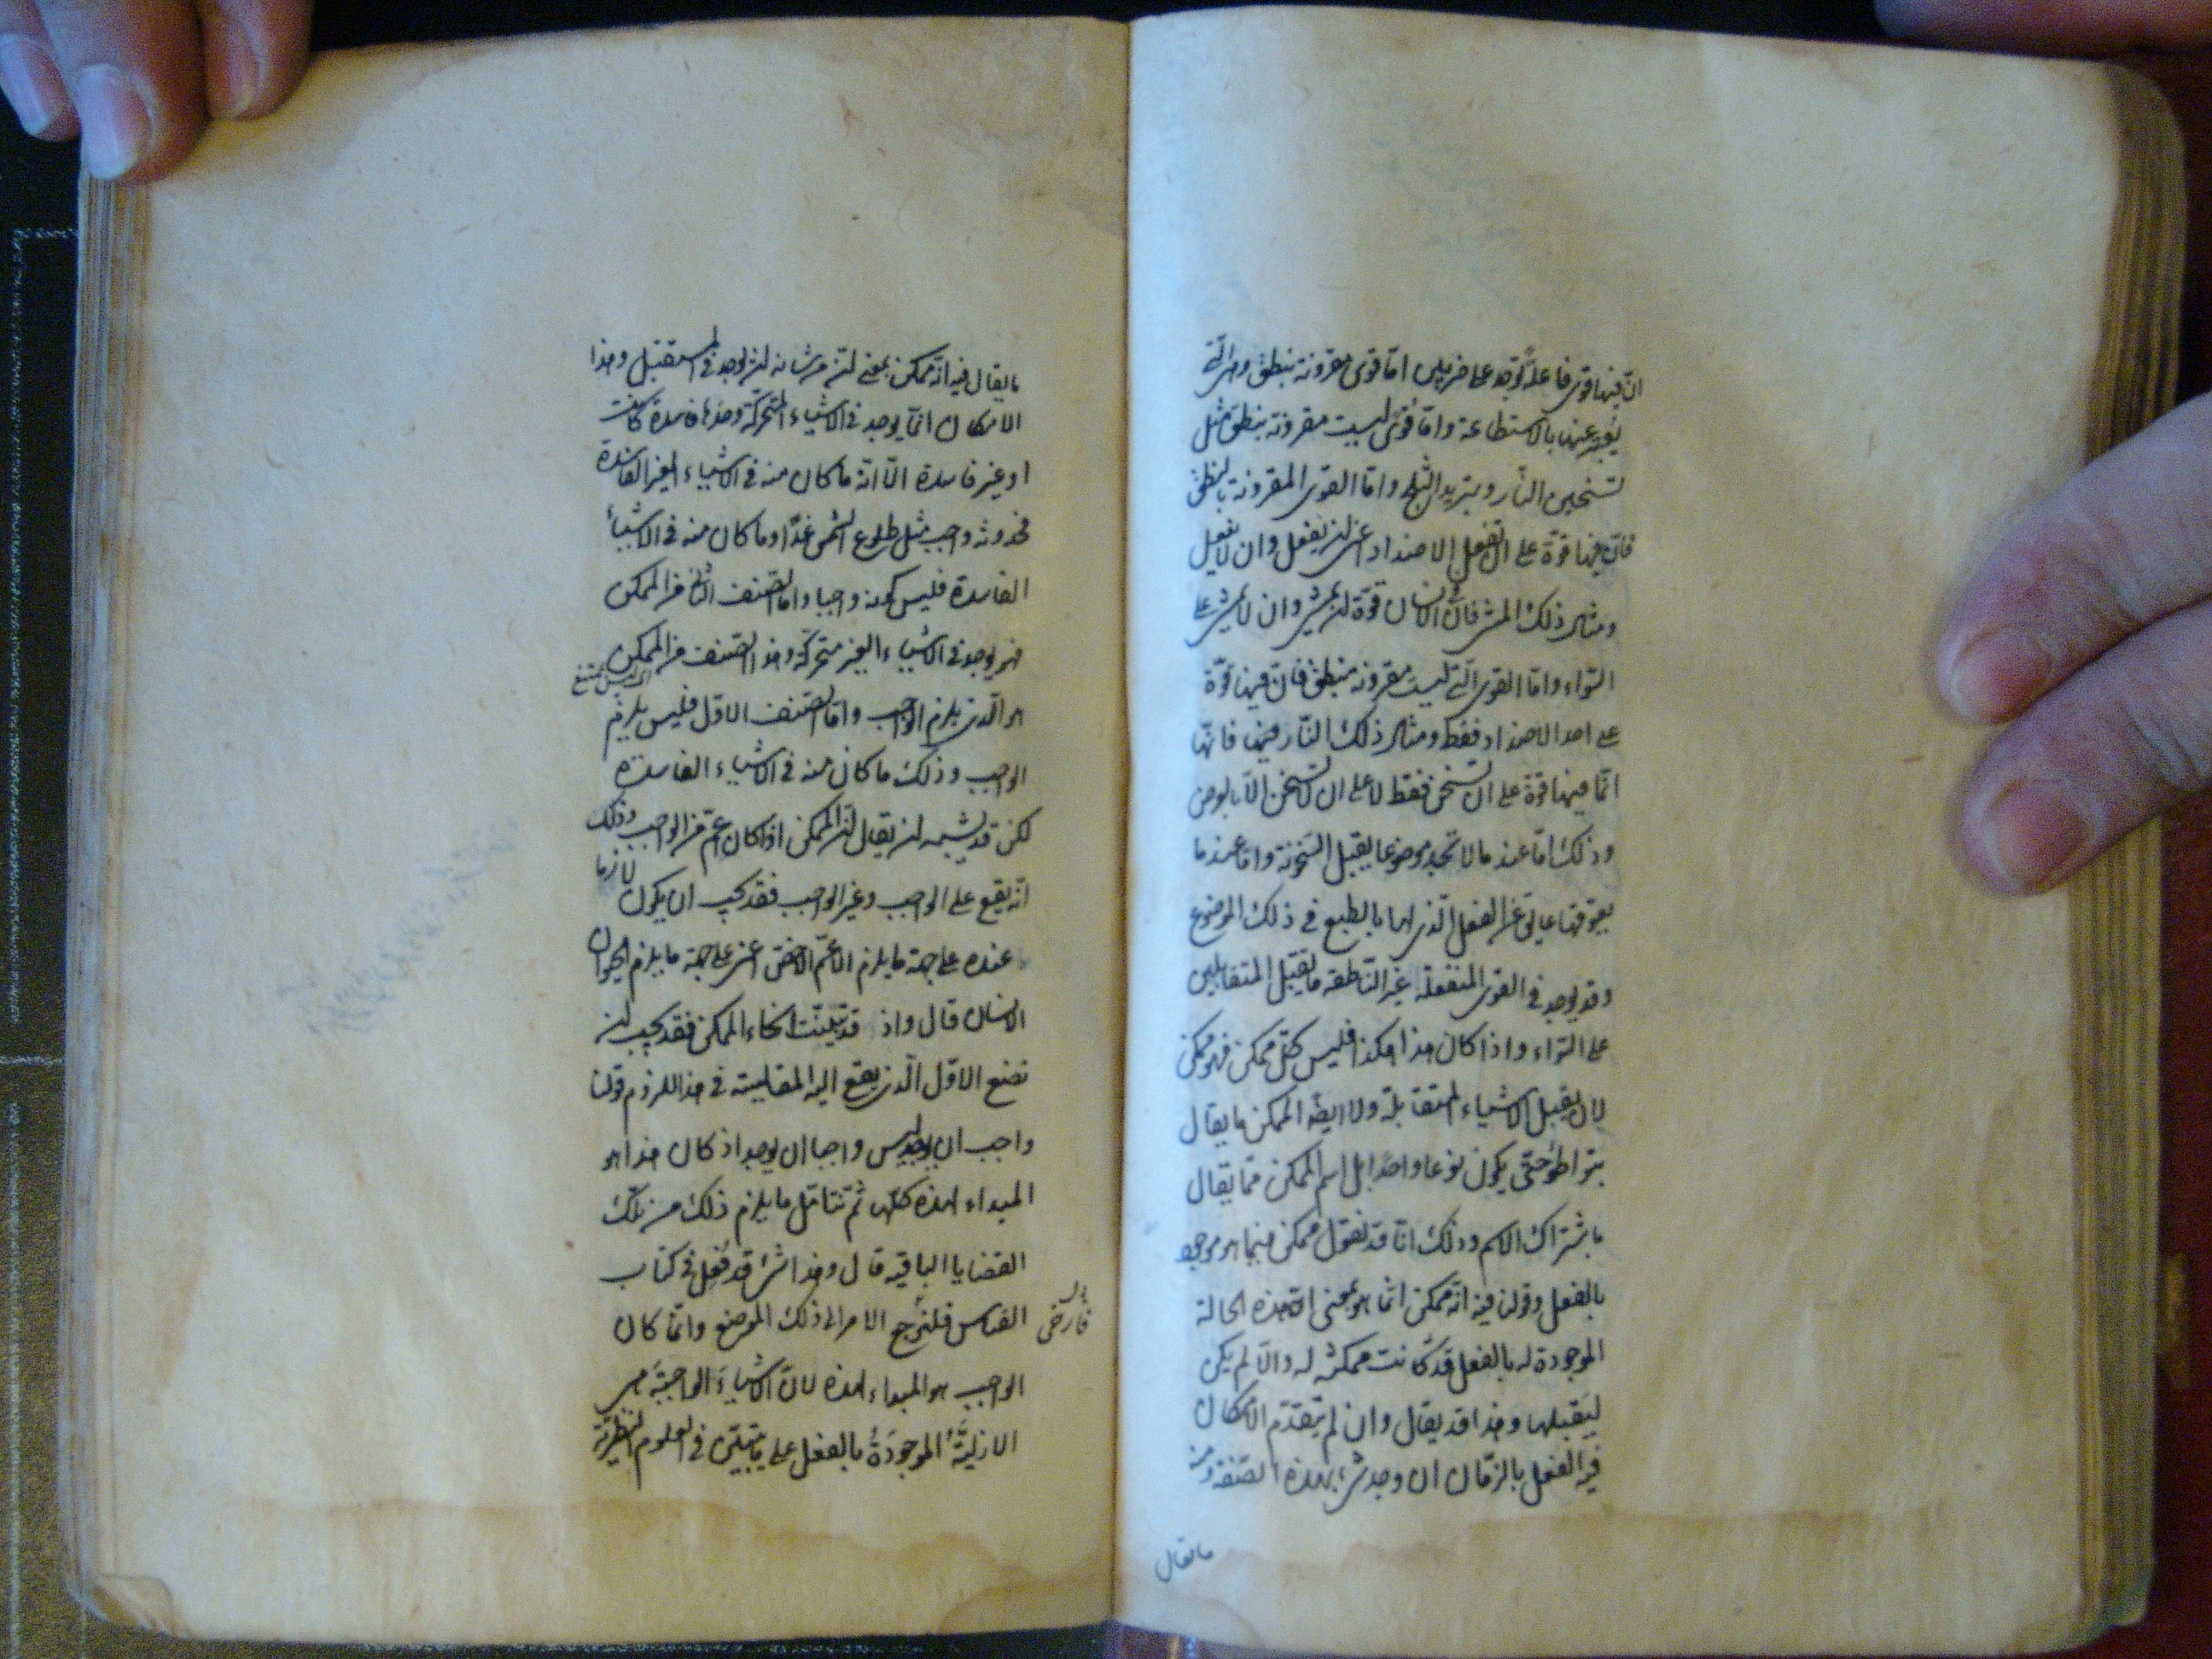 ان فيها قوى فاعلة توجد على ضربين اما قوى مقرونة بنطق وهى التى
يعبر عنها بالاستطاعة واما قوى ليست مقرونة بنطق مثل
تسخين النار وتبريد الثلج واما القوى المقرونة بالنطق
فان فيها قوة على ان تفعل الاضداد اعنى ان يفعل وان لا يفعل
ومثال ذلك المشى فان فى الانسان قوة ان يمشى وان لا يمشى على
السواء واما القوى التى ليست مقرونة بنطق فان فيها قوة
على احد الاضداد فقط ومثال ذلك النار فانها
انما فيها قوة على ان تسخن فقط لا على ان لا تسخن الا بالعرض
وذلك اما عند ما لا تجد موضوعا يقبل السخونة واما عند ما
يعوقها عائق عن الفعل الذى لها بالطبع فى ذلك الموضوع
وقد يوجد فى القوى المنفعلة غير الناطقة ما يقبل المتقابلين
على السواء واذا كان هذا هكذا فليس كل ممكن فهو ممكن
لان يقبل الاشياء المتقابلة ولا ايضا الممكن ما يقال
بتواطؤ حتى يكون نوعا واحدا بل اسم الممكن مما يقال
باشتراك الاسم وذلك انا قد نقول ممكن فيما هو موجود
بالفعل وقولنا فيه انه ممكن انما هو بمعنى ان هذه الحالة
الموجودة له بالفعل قد كانت ممكنة له والا لم يكن
ليقبلها وهذا قد يقال وان لم يتقدم الامكان
فيه الفعل بالزمان ان وجد شىء بهذه الصفة ومنه
ما يقال
ما يقال فيه انه ممكن بمعنى ان من شانه ان يوجد فى المستقبل وهذا
الامكان انما يوجد فى الاشياء المتحركة وحدها فاسدة كانت
او غير فاسدة الا انه ما كان منه فى الاشياء الغير الفاسدة
فحدوثه واجب مثل طلوع الشمس غدا وما كان منه فى الاشياء
الفاسدة فليس كونه واجبا واما الصنف الثانى من الممكن
فهو يوجد فى الاشياء الغير متحركة وهذا الصنف من الممكن
اى ليس بممتنع
هو الذى يلزم الواجب واما الصنف الاول فليس يلزم
الواجب وذلك ما كان منه فى الاشياء الفاسدة
لكن قد يشبه ان يقال ان الممكن اذا كان اعم من الواجب وذلك
انه يقع على الواجب وغير الواجب فقد يجب ان يكون لازما
عنه على جهة ما يلزم الاعم الاخص اعنى على جهة ما يلزم الحيوان
الانسان قال واذ قد تبينت انحاء الممكن فقد يجب ان
نضع الاول الذى يقع اليه المقايسة فى هذا اللزوم قولنا
واجب ان يوجد ليس واجبا ان يوجد اذ كان هذا هو
المبداء لهذه كلها ثم نتامل ما يلزم ذلك من تلك
القضايا الباقية قال وهذا شىء قد فعل فى كتاب
القياس فلنرجع الامر الى ذلك الموضع وانما كان
الواجب هو المبداء لهذه لان الاشياء الواجبة هى
الازلية الموجودة بالفعل على ما تبين فى العلوم النظرية